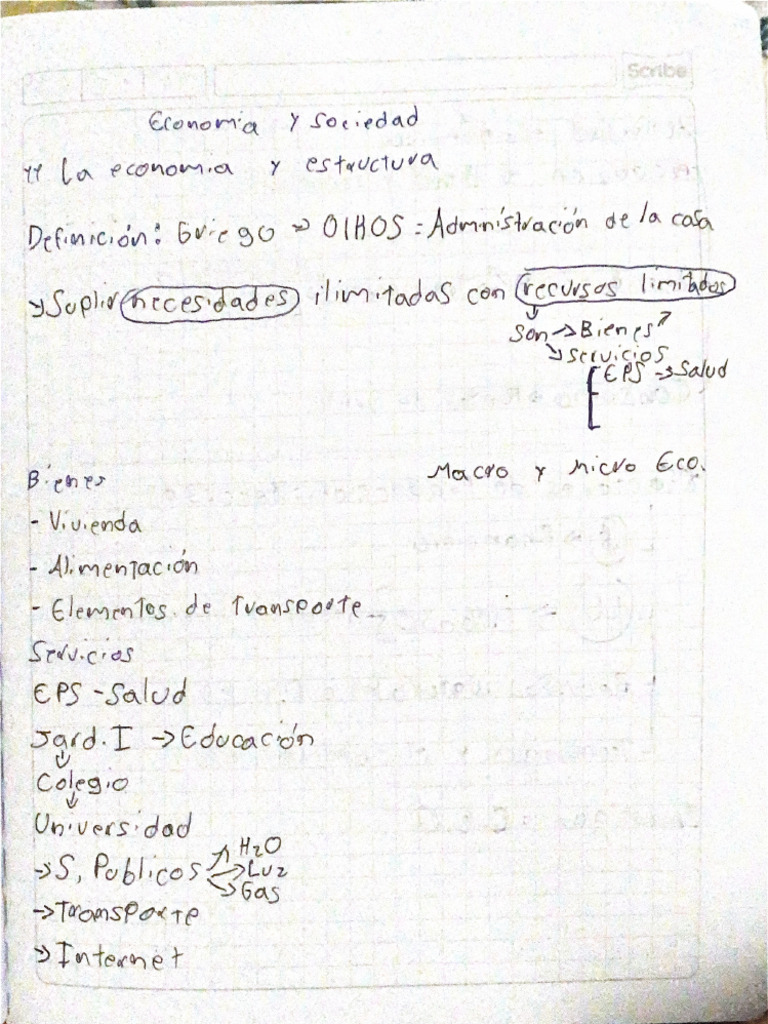 Scribe
Economia y sociedad
La economia y estructura
Definición: Griego => OIHOS = Administración de la casa
Suplir necesidades ilimitadas con recursos limitados
Son -> Bienes
-> servicios
EPS -> Salud
Macro y micro Eco.
Bienes
- Vivienda
- Alimentación
- Elementos de transporte
Servicios
EPS - Salud
Jard. I -> Educación
Colegio
Universidad
-> S, Publicos -> H2O
-> Luz
-> Gas
-> Transporte
-> Internet